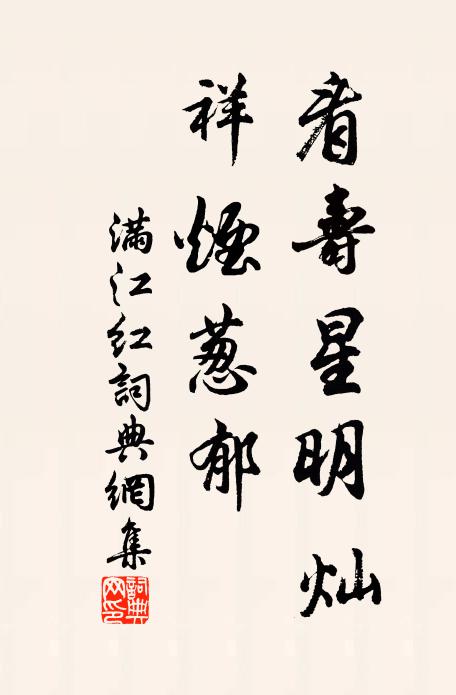 看壽星明灿
祥煙葱郁
滿江红詞典網集
詞典网印